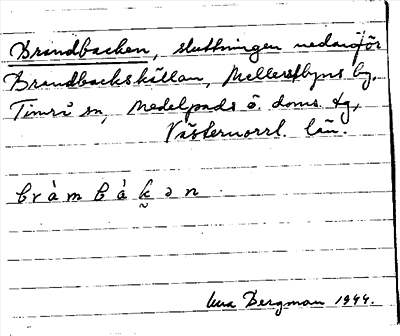 Brandbacken, sluttningen nedanför
Brandbackskällan, Mellerstbyns by,
Timrå sn, Medelpads ö. doms. tg,
Västernorrl. län.
b r à m b á k̰ ə n
Bergman 1944.